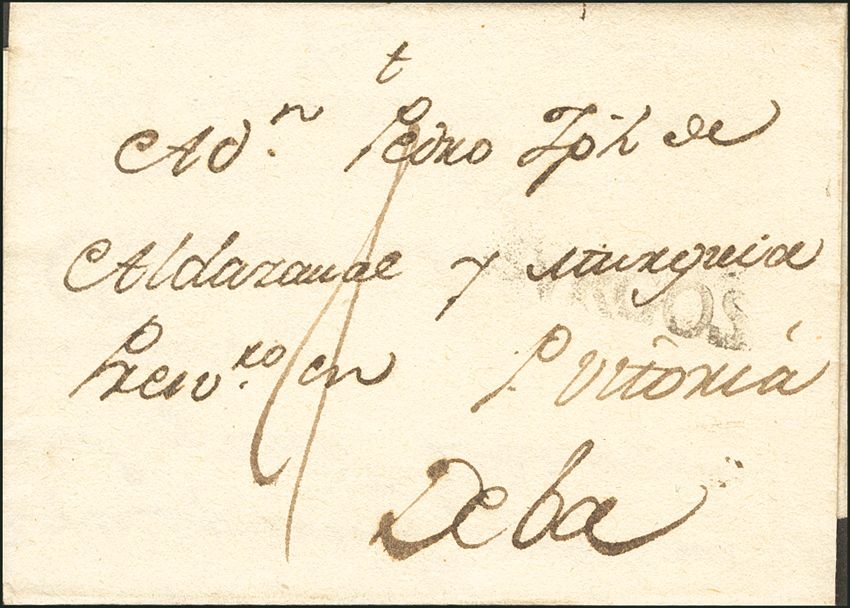 t
A Dn. Pedro Jph de
Aldazaual y Murguia
Presv.ro en P. Vitoria
Deba